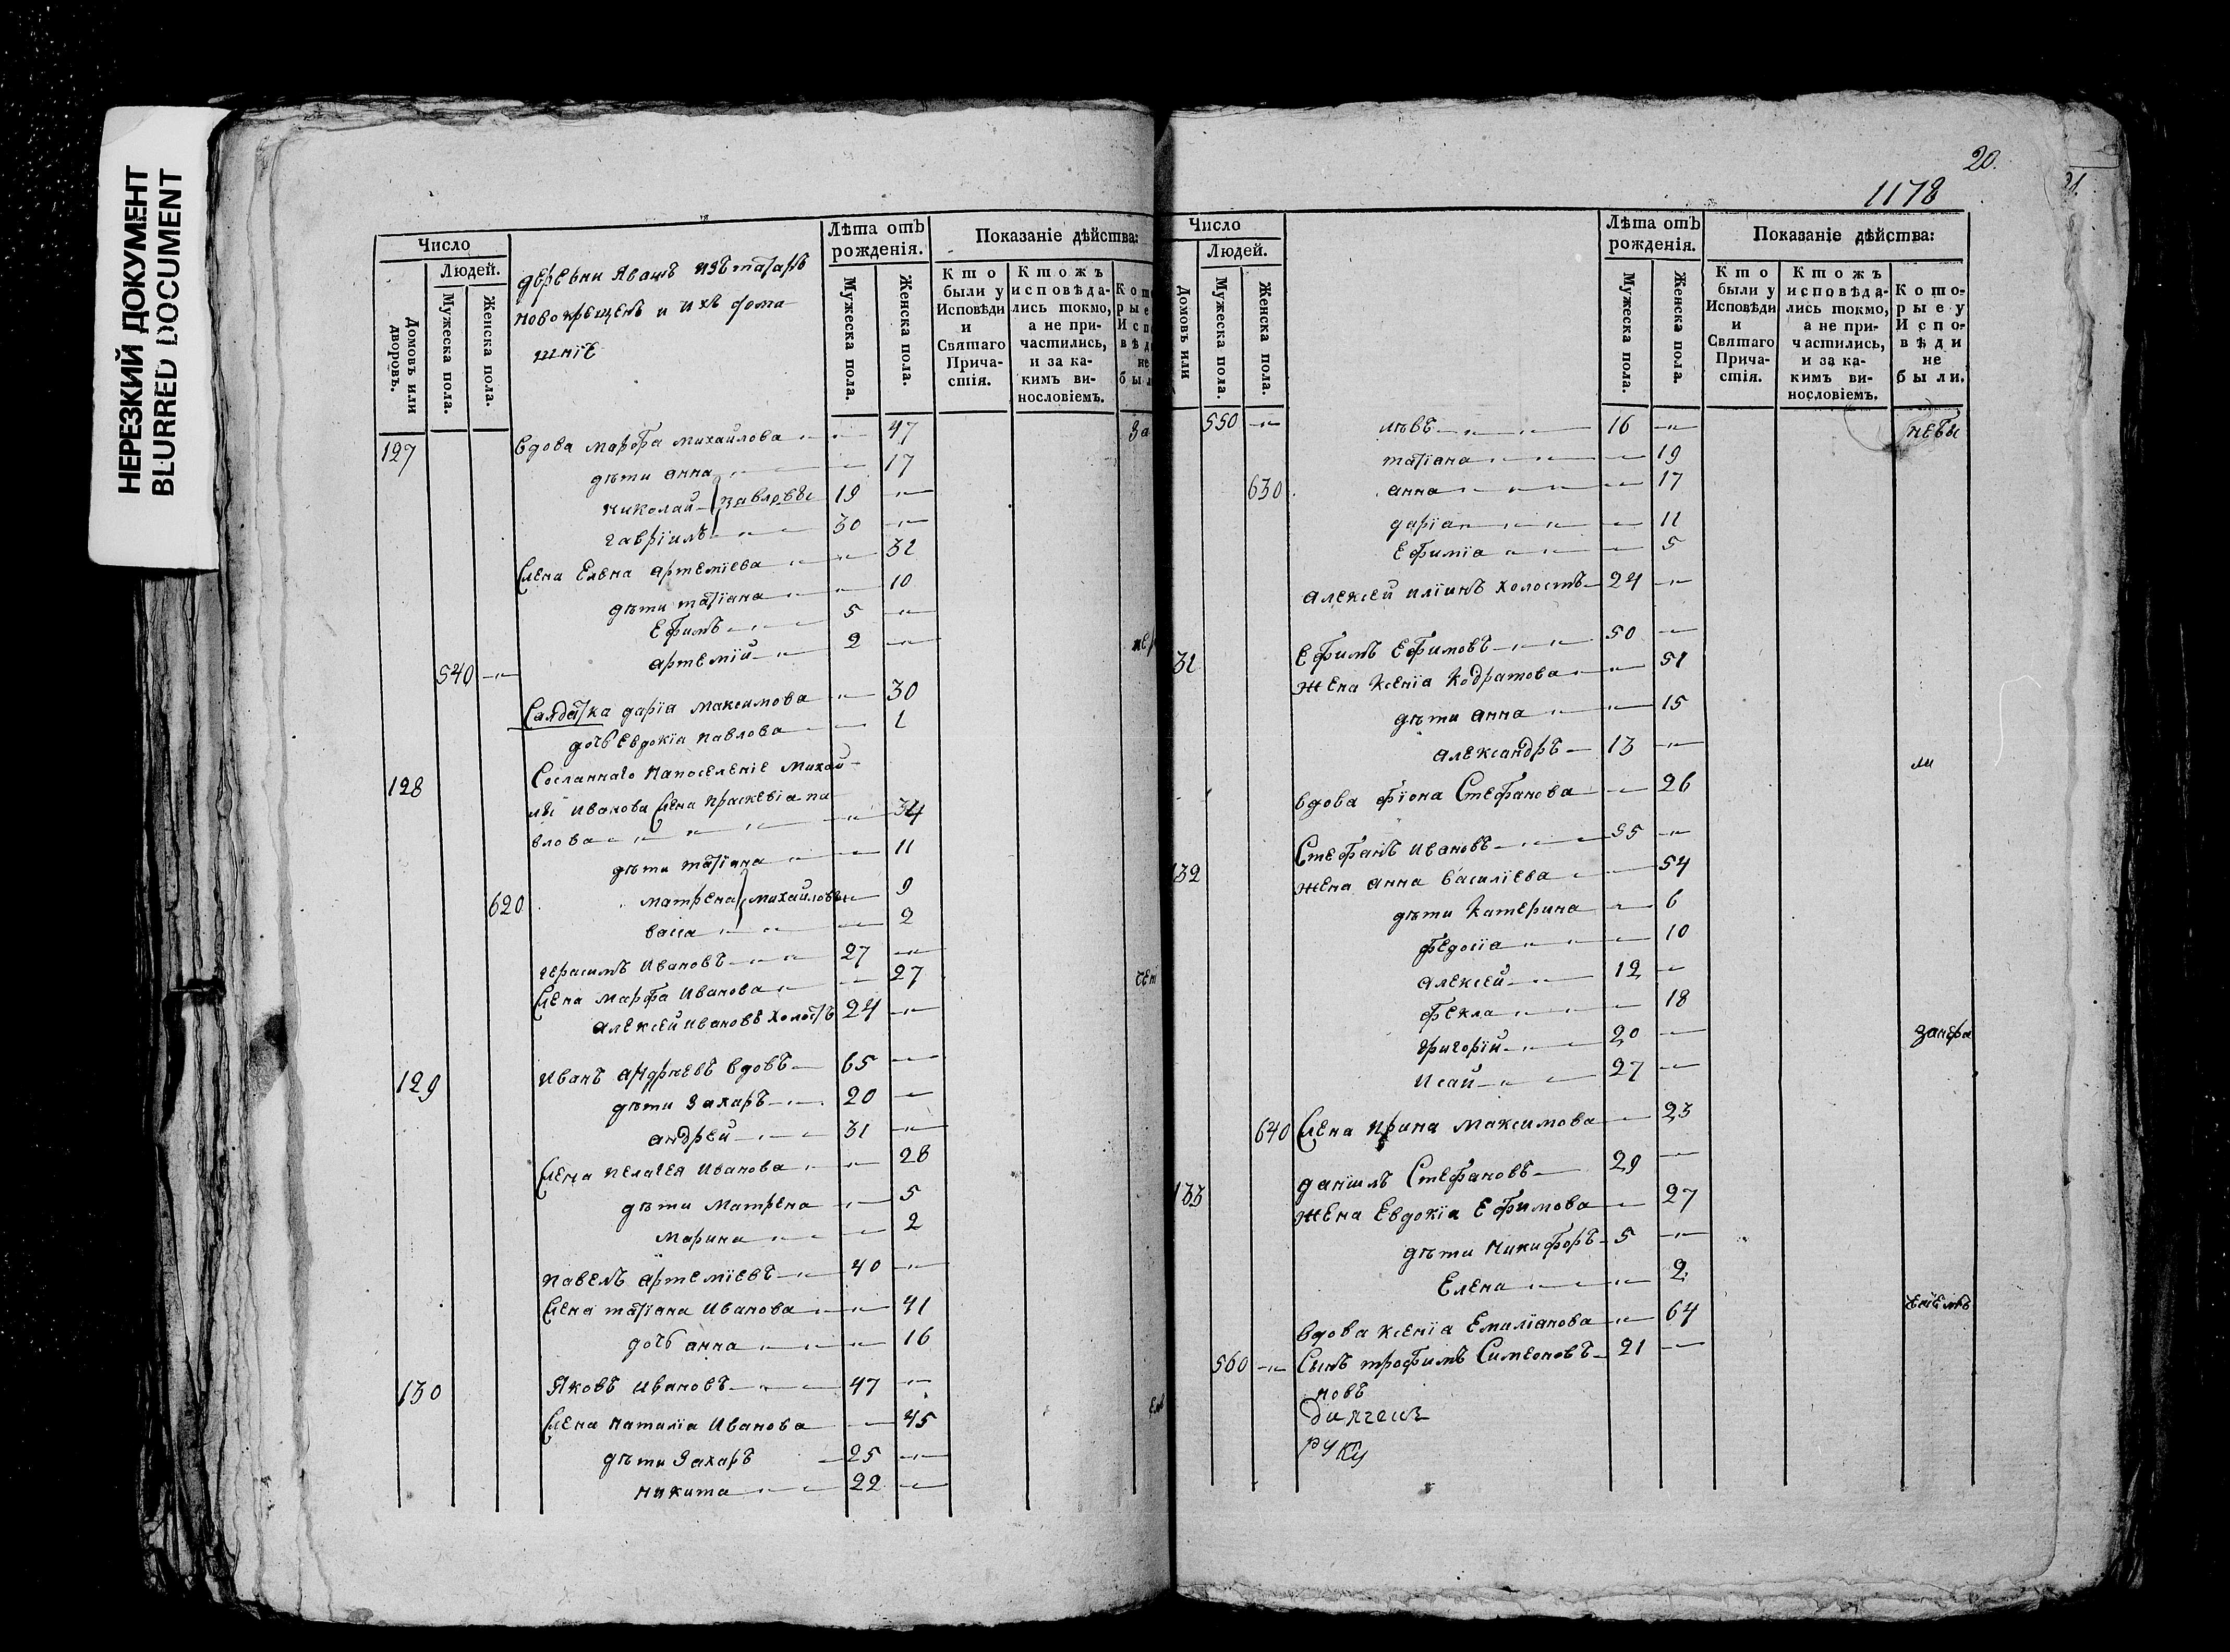 НЕРЕЗКИЙ ДОКУМЕНТ
BLURRED DOCUMENT
Число
Людей.
Домовъ или дворовъ.
Мужеска пола.
Женска пола.
деревни Яваш изъ татаръ
новокрещенъ и ихъ дома
шнiе
Лѣта отъ рожденія.
Мужеска пола.
Женска пола.
Показаніе дѣйства:
Кто были у Исповѣди и Святаго Причастія.
Ктожъ исповѣдались токмо, а не причастились, и за какимъ винословіемъ.
127 вдова марфа михайлова 47 За
дѣти анна 17
николай павловы 19
гаврiилъ 30
жена Елена артемiева 32
дѣти татiана 10
Ефимъ 5
540 артемiй 2
Салдатка дарiа максимова 30
дочь Евдокiа павлова 1
128 Сосланнаго на поселенiе михай
лы иванова жена праскевiа па
влова 34
дѣти татiана 11
620 матрена михайловы 9
васса 2
герасимъ ивановъ 27
жена марфа иванова 27
алексей ивановъ холостъ 24
129 иванъ андреевъ вдовъ 65
дѣти Захаръ 20
андрей 31
жена пелагея иванова 28
дѣти матрена 5
марина 2
павелъ артемiевъ 40
жена татiана иванова 41
дочь анна 16
130 Яковъ ивановъ 47
жена наталiа иванова 45
дѣти Захаръ 25
никита 22
20.
1178
21.
Число
Людей.
Домовъ или
Мужеска пола.
Женска пола.
Лѣта отъ рожденія.
Мужеска пола.
Женска пола.
Показаніе дѣйства:
Кто были у Исповѣди и Святаго Причастія.
Ктожъ исповѣдались токмо, а не причастились, и за какимъ винословіемъ.
Которые у Исповѣди не были.
550 лѣвъ 16 небы
татiана 19
630 анна 17
дарiа 11
Ефимiа 5
алексей илiинъ холостъ 24
31 Ефимъ Ефимовъ 50
жена ксенiа кодратова 51
дѣти анна 15
александръ 13
ли
вдова фiона Стефанова 26
132 Стефанъ ивановъ 55
жена анна василiева 54
дѣти катерина 6
федосiа 10
алексей 12
фекла 18
григорiй 20
исай 27
640 жена ирина максимова 23
133 данiилъ Стефановъ 29
жена Евдокiа Ефимова 27
дѣти никифоръ 5
Елена 2
вдова ксенiа Емилiанова 64
560 Сынъ трофимъ Симеоновъ 21
новъ
руку